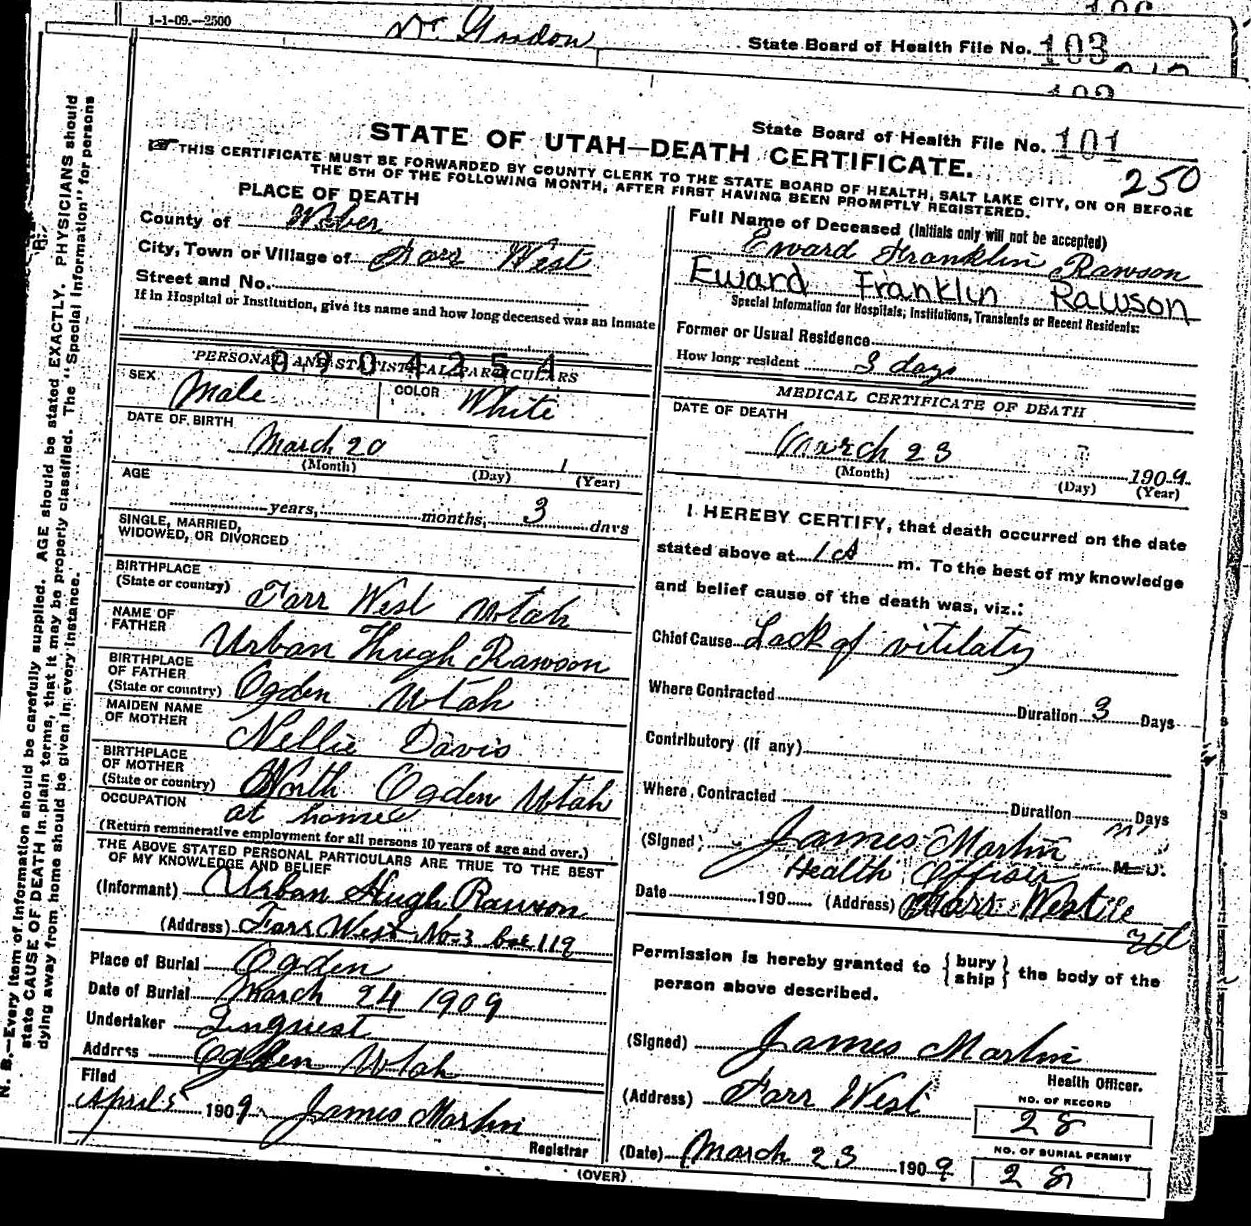 1-1-09.—2500
Dr. Gordon
State Board of Health File No. 103
State Board of Health File No. 101
250
STATE OF UTAH—DEATH CERTIFICATE.
THIS CERTIFICATE MUST BE FORWARDED BY COUNTY CLERK TO THE STATE BOARD OF HEALTH, SALT LAKE CITY, ON OR BEFORE
THE 5TH OF THE FOLLOWING MONTH, AFTER FIRST HAVING BEEN PROMPTLY REGISTERED.
N. B.—Every item of information should be carefully supplied. AGE should be stated EXACTLY. PHYSICIANS should
state CAUSE OF DEATH in plain terms, that it may be properly classified. The "Special Information" for persons
dying away from home should be given in every instance.
PLACE OF DEATH
County of Weber
City, Town or Village of Farr West
Street and No.
If in Hospital or Institution, give its name and how long deceased was an Inmate
0904254
PERSONAL AND STATISTICAL PARTICULARS
SEX Male COLOR White
DATE OF BIRTH
March 20 1
(Month) (Day) (Year)
AGE
years, months, 3 days
SINGLE, MARRIED,
WIDOWED, OR DIVORCED
BIRTHPLACE
(State or country) Farr West Utah
NAME OF
FATHER Urban Hugh Rawson
BIRTHPLACE
OF FATHER
(State or country) Ogden Utah
MAIDEN NAME
OF MOTHER Nellie Davis
BIRTHPLACE
OF MOTHER
(State or country) North Ogden Utah
OCCUPATION at home
(Return remunerative employment for all persons 10 years of age and over.)
THE ABOVE STATED PERSONAL PARTICULARS ARE TRUE TO THE BEST
OF MY KNOWLEDGE AND BELIEF
(Informant) Urban Hugh Rawson
(Address) Farr West No-3 box 119
Place of Burial Ogden
Date of Burial March 24 1909
Undertaker Linquest
Address Ogden Utah
Filed
April 5 1909 James Martin
Registrar
Full Name of Deceased (Initials only will not be accepted)
Eward Franklin Rawson
Eward Franklin Rawson
Special Information for Hospitals, Institutions, Transients or Recent Residents:
Former or Usual Residence
How long resident 3 days
MEDICAL CERTIFICATE OF DEATH
DATE OF DEATH
March 23 1909
(Month) (Day) (Year)
I HEREBY CERTIFY, that death occurred on the date
stated above at 1 A m. To the best of my knowledge
and belief cause of the death was, viz.:
Chief Cause Lack of vitilaty
Where Contracted
Duration 3 Days
Contributory (if any)
Where Contracted
Duration Days
(Signed) James Martin M. D.
Health Officer
Date 190 (Address) Farr West
Permission is hereby granted to { bury ship } the body of the
person above described.
(Signed) James Martin
Health Officer.
(Address) Farr West
NO. OF RECORD
28
(Date) March 23 1909
NO. OF BURIAL PERMIT
28
(OVER)